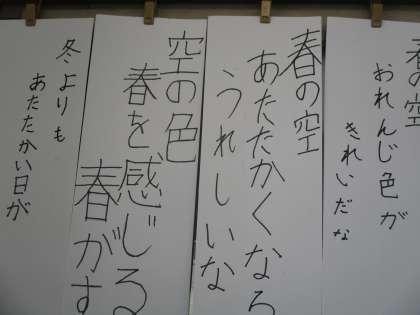 春の空
おれんじ色が
きれいだな
春の空
あたたかくなる
うれしいな
空の色
春を感じる
春がす
冬よりも
あたたかい日が